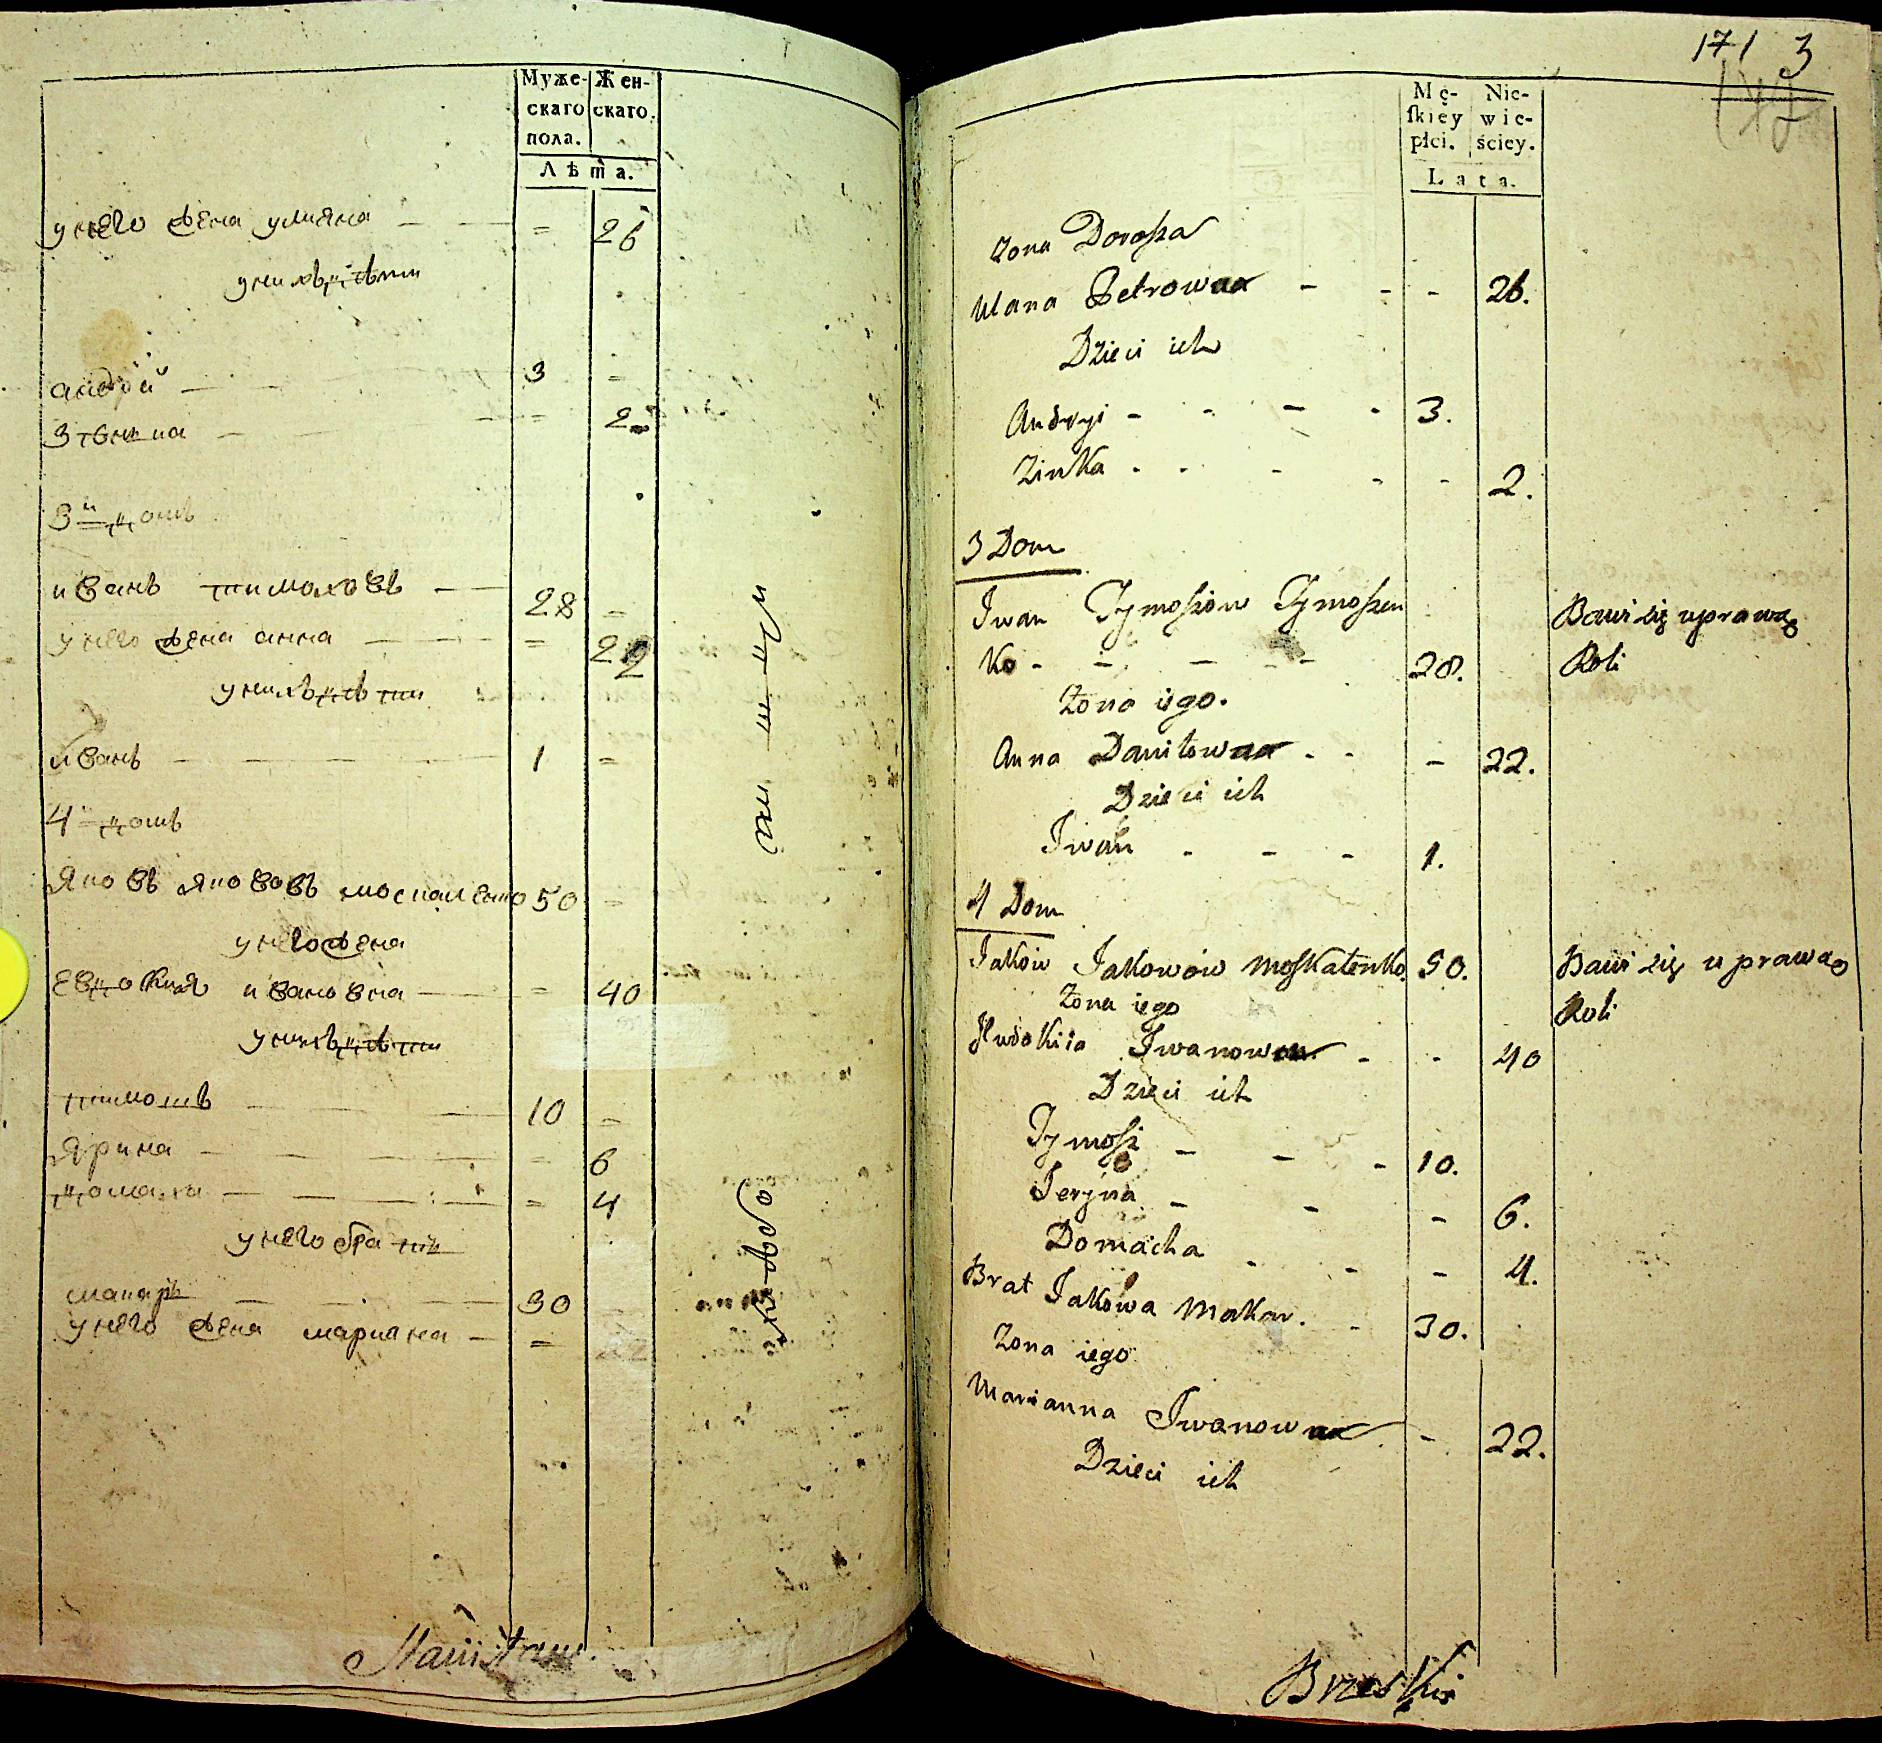 Муже- Жен-
скаго скаго.
пола.
Лѣта.
унего жена улияна — = 26
унихъ дѣти
андрѣй — 3 =
зѣнька — = 2
3й домъ
иванъ тимоховъ — 28 =
унего жена анна — = 22
унихъ дѣти
иванъ — 1 =
4й домъ
Яковъ якововъ москаленко 50 =
унего жена
евдокия ивановна — = 40
унихъ дѣти
тимошъ — 10 =
Ярина — = 6
домаха — = 4
унего братъ
макаръ — 30
унего жена марияна — = 22
171 3
Mę- Nie-
skiey wie-
płci. ściey.
Lata.
Zona Dorosza
Ulana Petrowna - - - 26.
Dzieci ich
Andryi - - - - 3.
Zinka - - - - - 2.
3 Dom
Iwan Tymoszow Tymoszen Bawi się uprawą
ko - - - - - 28. Roli
Zona iego.
Anna Daniłowna - - - 22.
Dzieci ich
Iwan - - - 1.
4 Dom
Jakow Jakowow Moskalenko. 50. Bawi się uprawą
Zona iego Roli
Eudokiia Iwanowna - - 40
Dzieci ich
Tymosz - - - 10.
Jeryna - - - 6.
Domacha - - - 4.
Brat Jakowa Makar. - 30.
Zona iego
Marianna Iwanowna - 22.
Dzieci ich
Brzeski